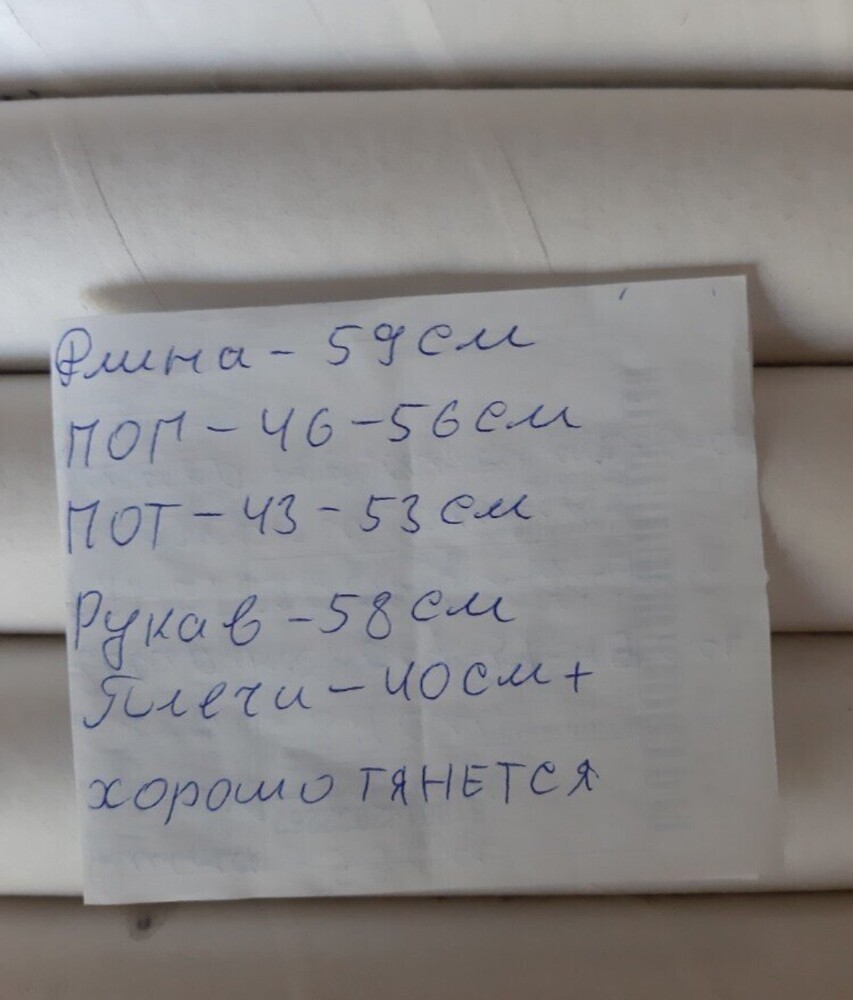 Длина - 59 см
ПОГ - 46 - 56 см
ПОТ - 43 - 53 см
Рукав - 58 см
Плечи - 40 см +
хорошо тянется